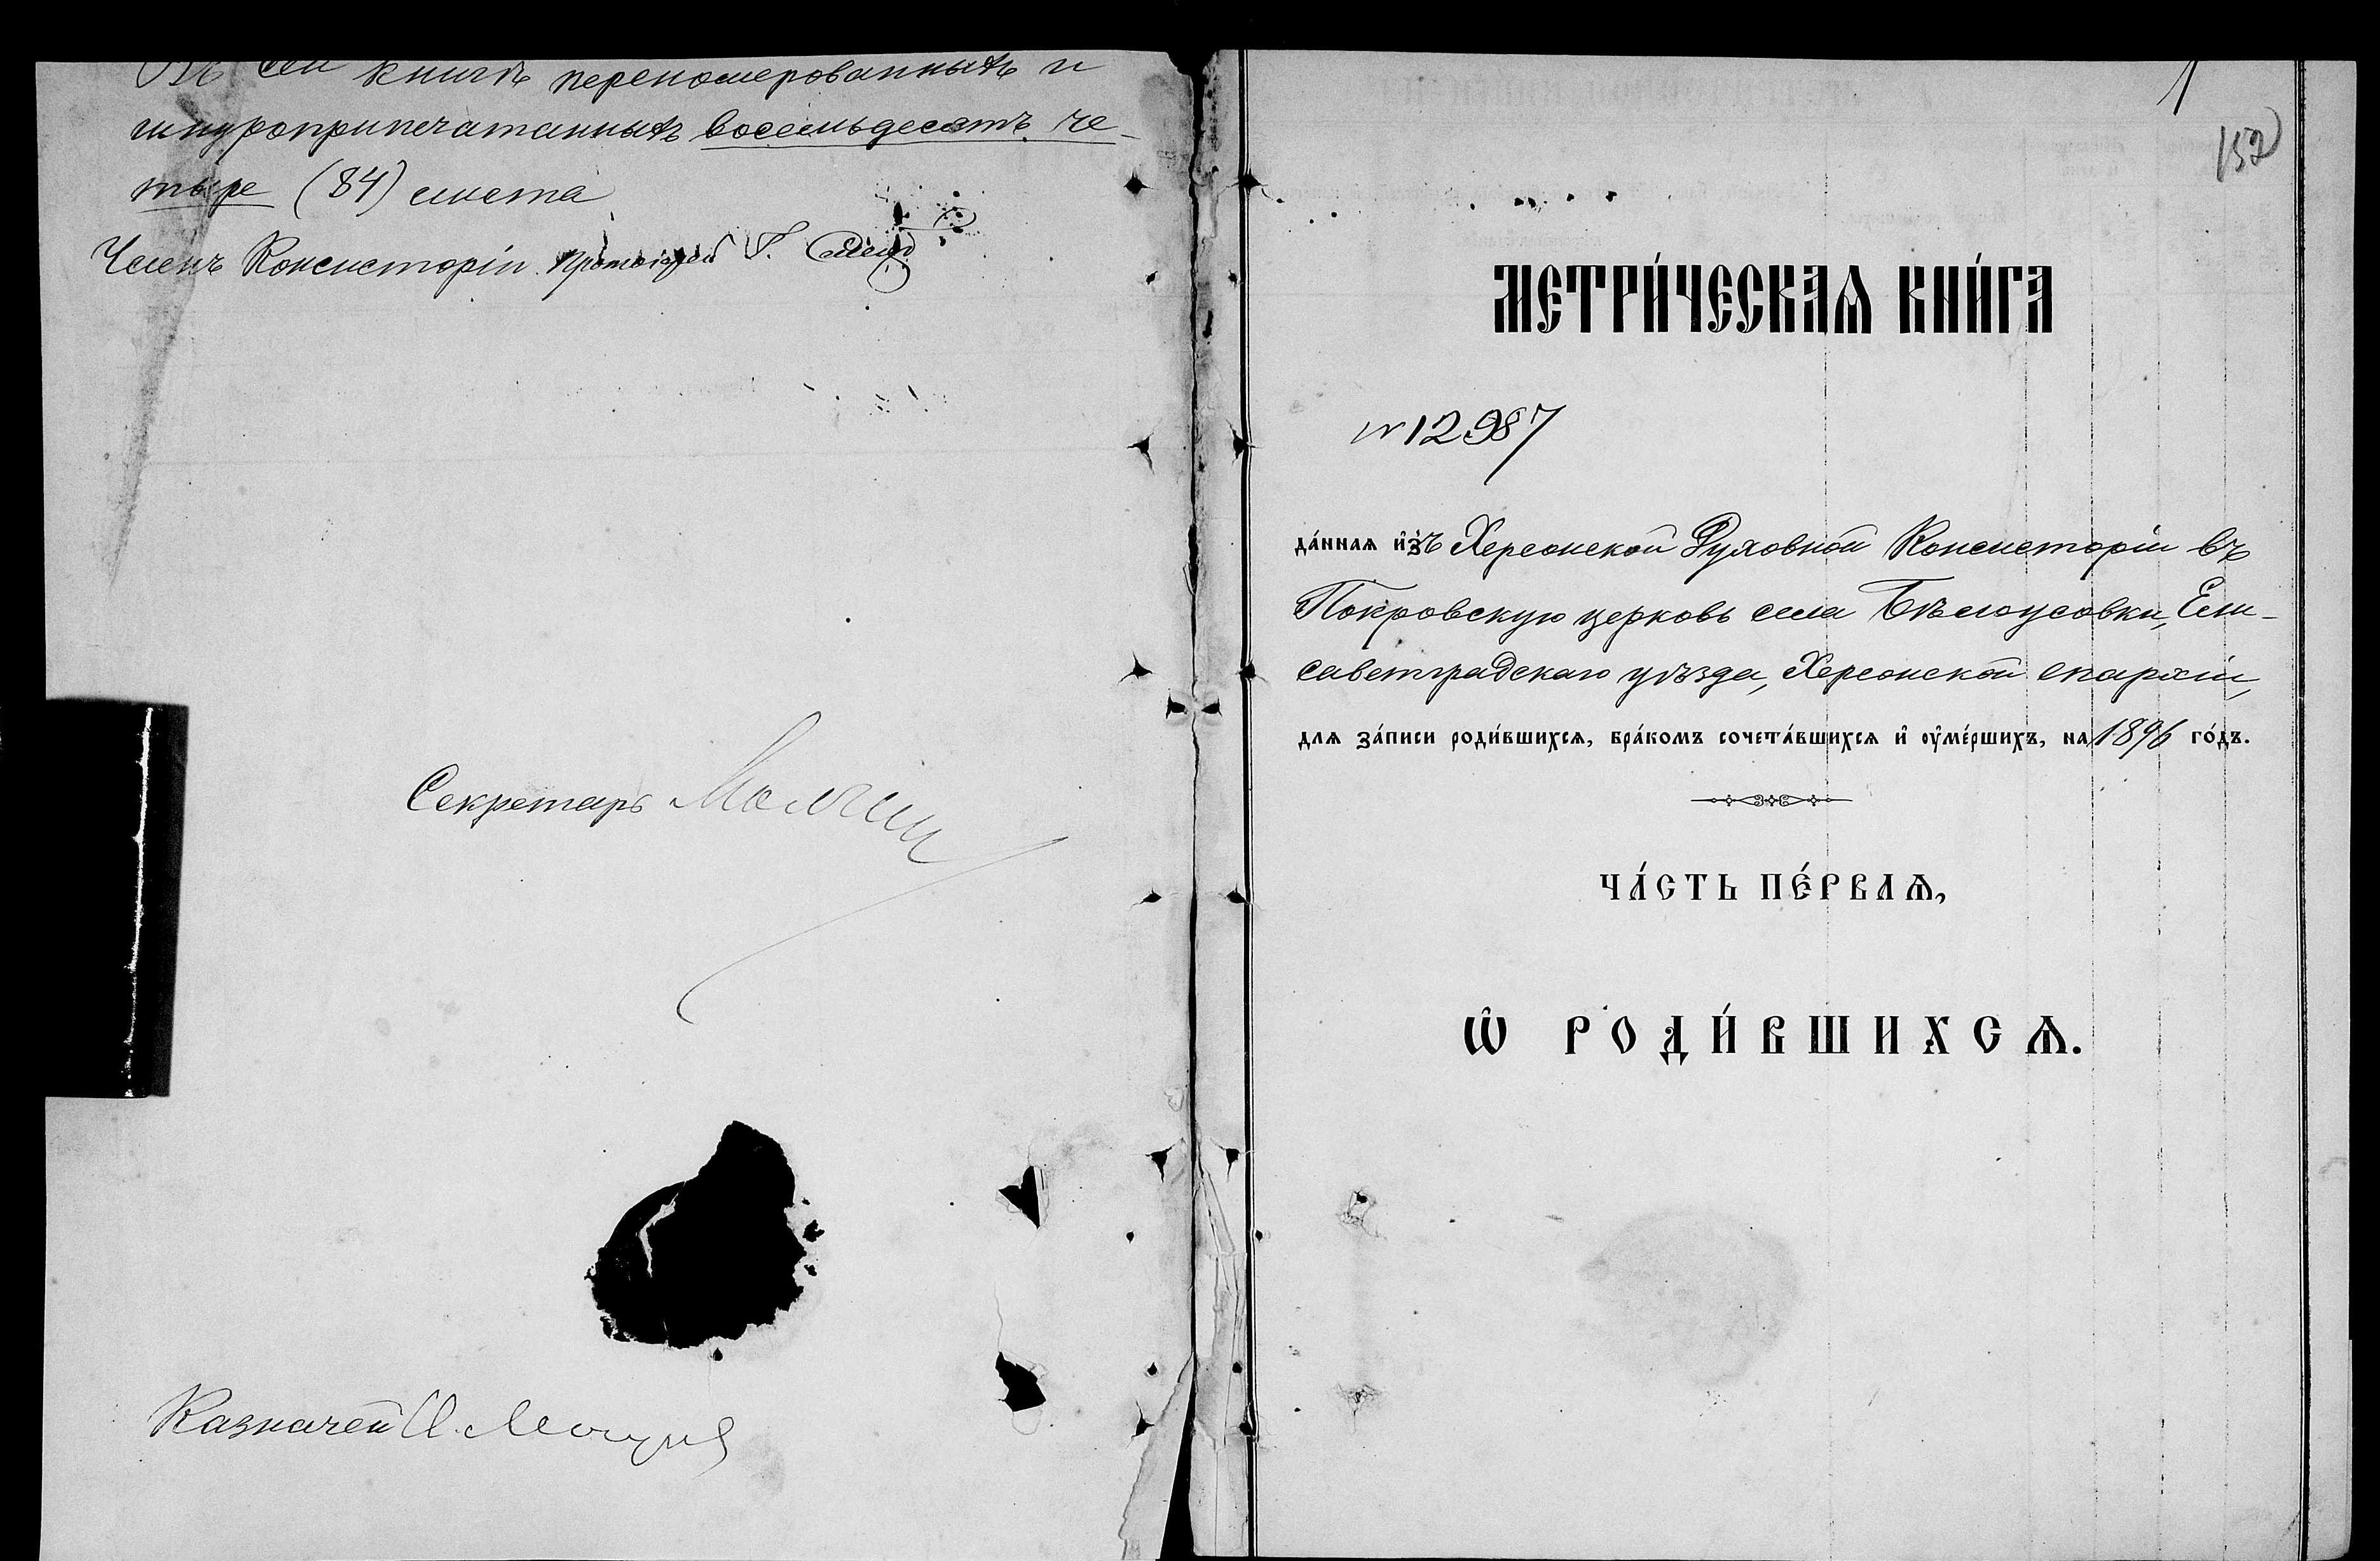 Въ сей книгѣ перенумерованныхъ и
шнуроприпечатанныхъ восемьдесятъ че-
тыре (84) листа
Членъ Консисторіи Протоіерей Г.
Секретарь
Казначей
1
152
МЕТРИ́ЧЕСКАѦ КНИ́ГА
№ 12987
да́нная и҆зъ Херсонской Духовной Консисторіи въ
Покровскую церковь села Бѣлоусовки, Ели-
саветградскаго уѣзда, Херсонской епархіи,
для за́писи роди́вшихсѧ, бра́комъ сочета́вшихсѧ и҆ оу҆ме́ршихъ, на 1896 го́дъ.
ЧА́СТЬ ПЕ́РВАѦ,
Ѡ҆ РОДИ́ВШИХСѦ.